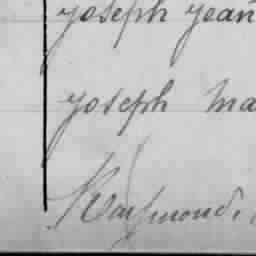 joseph jean
joseph ma
Raymond.